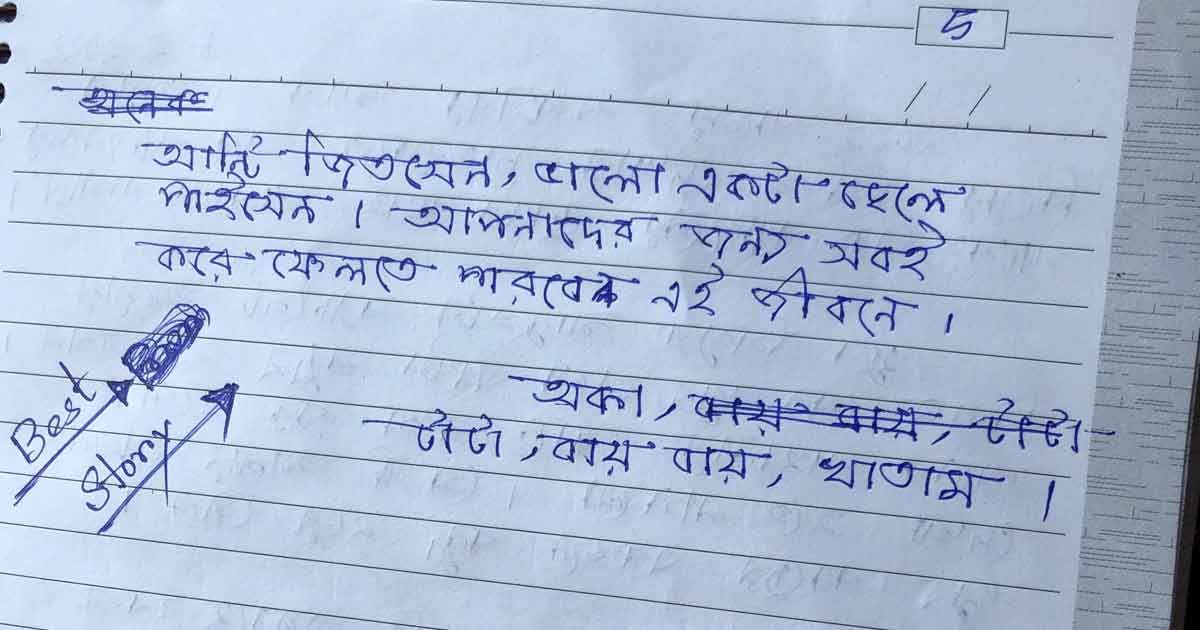 5
অনেক
আন্টি জিতসেন, ভালো একটা ছেলে
পাইসেন। আপনাদের জন্য সবই
করে ফেলতে পারবে এই জীবনে।
অকা, বায় বায়, টাটা
টাটা, বায় বায়, খাতাম।
Best
Story